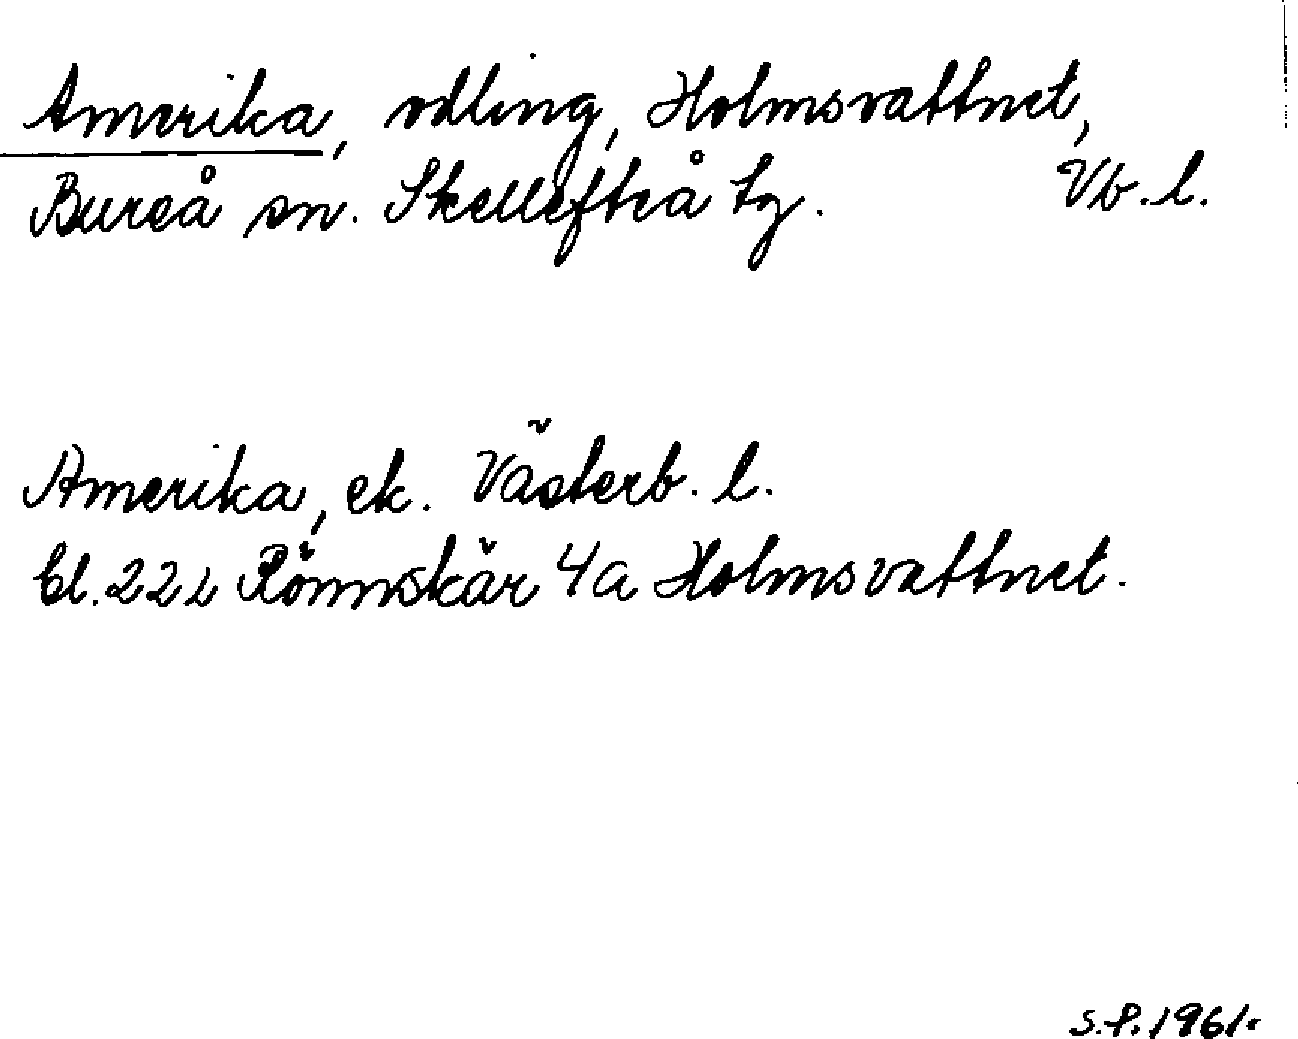 Amerika, odling, Holmsvattnet,
Bureå sn. Skellefteå tg. Vb. l.
Amerika, ek. Västerb. l.
bl. 22 i Rönnskär 4a Holmsvattnet.
S.P. 1961.